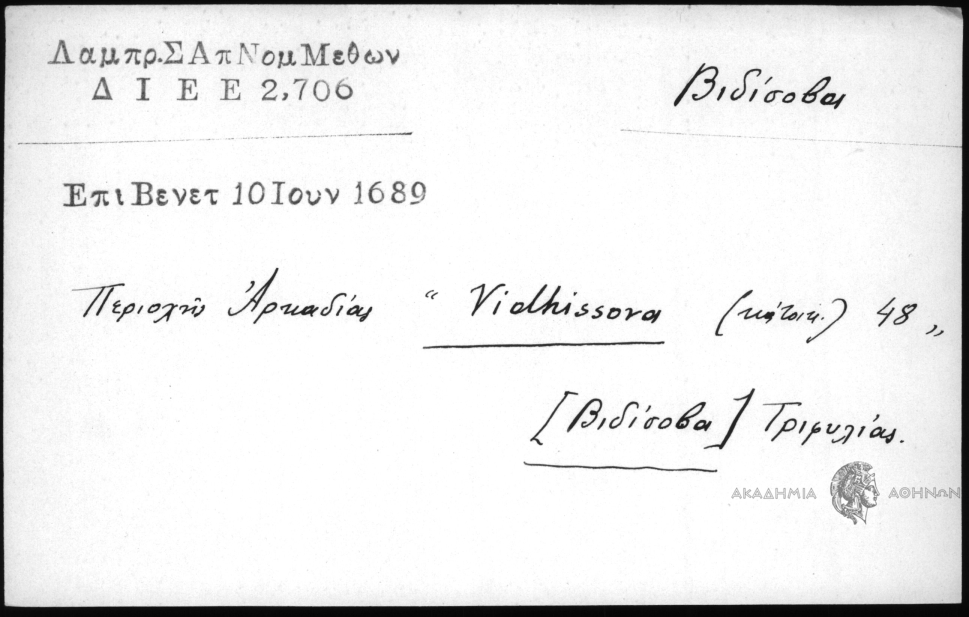 Λαμπρ.ΣΑπΝομΜεθων
ΔΙΕΕ 2,706
Βιδίσοβα
ΕπιΒενετ 10Ιουν 1689
Περιοχῆς Ἀρκαδίας “ Vidhissova (κάτοικ.) 48 „
[Βιδίσοβα] Τριφυλίας.
ΑΚΑΔΗΜΙΑ ΑΘΗΝΩΝ